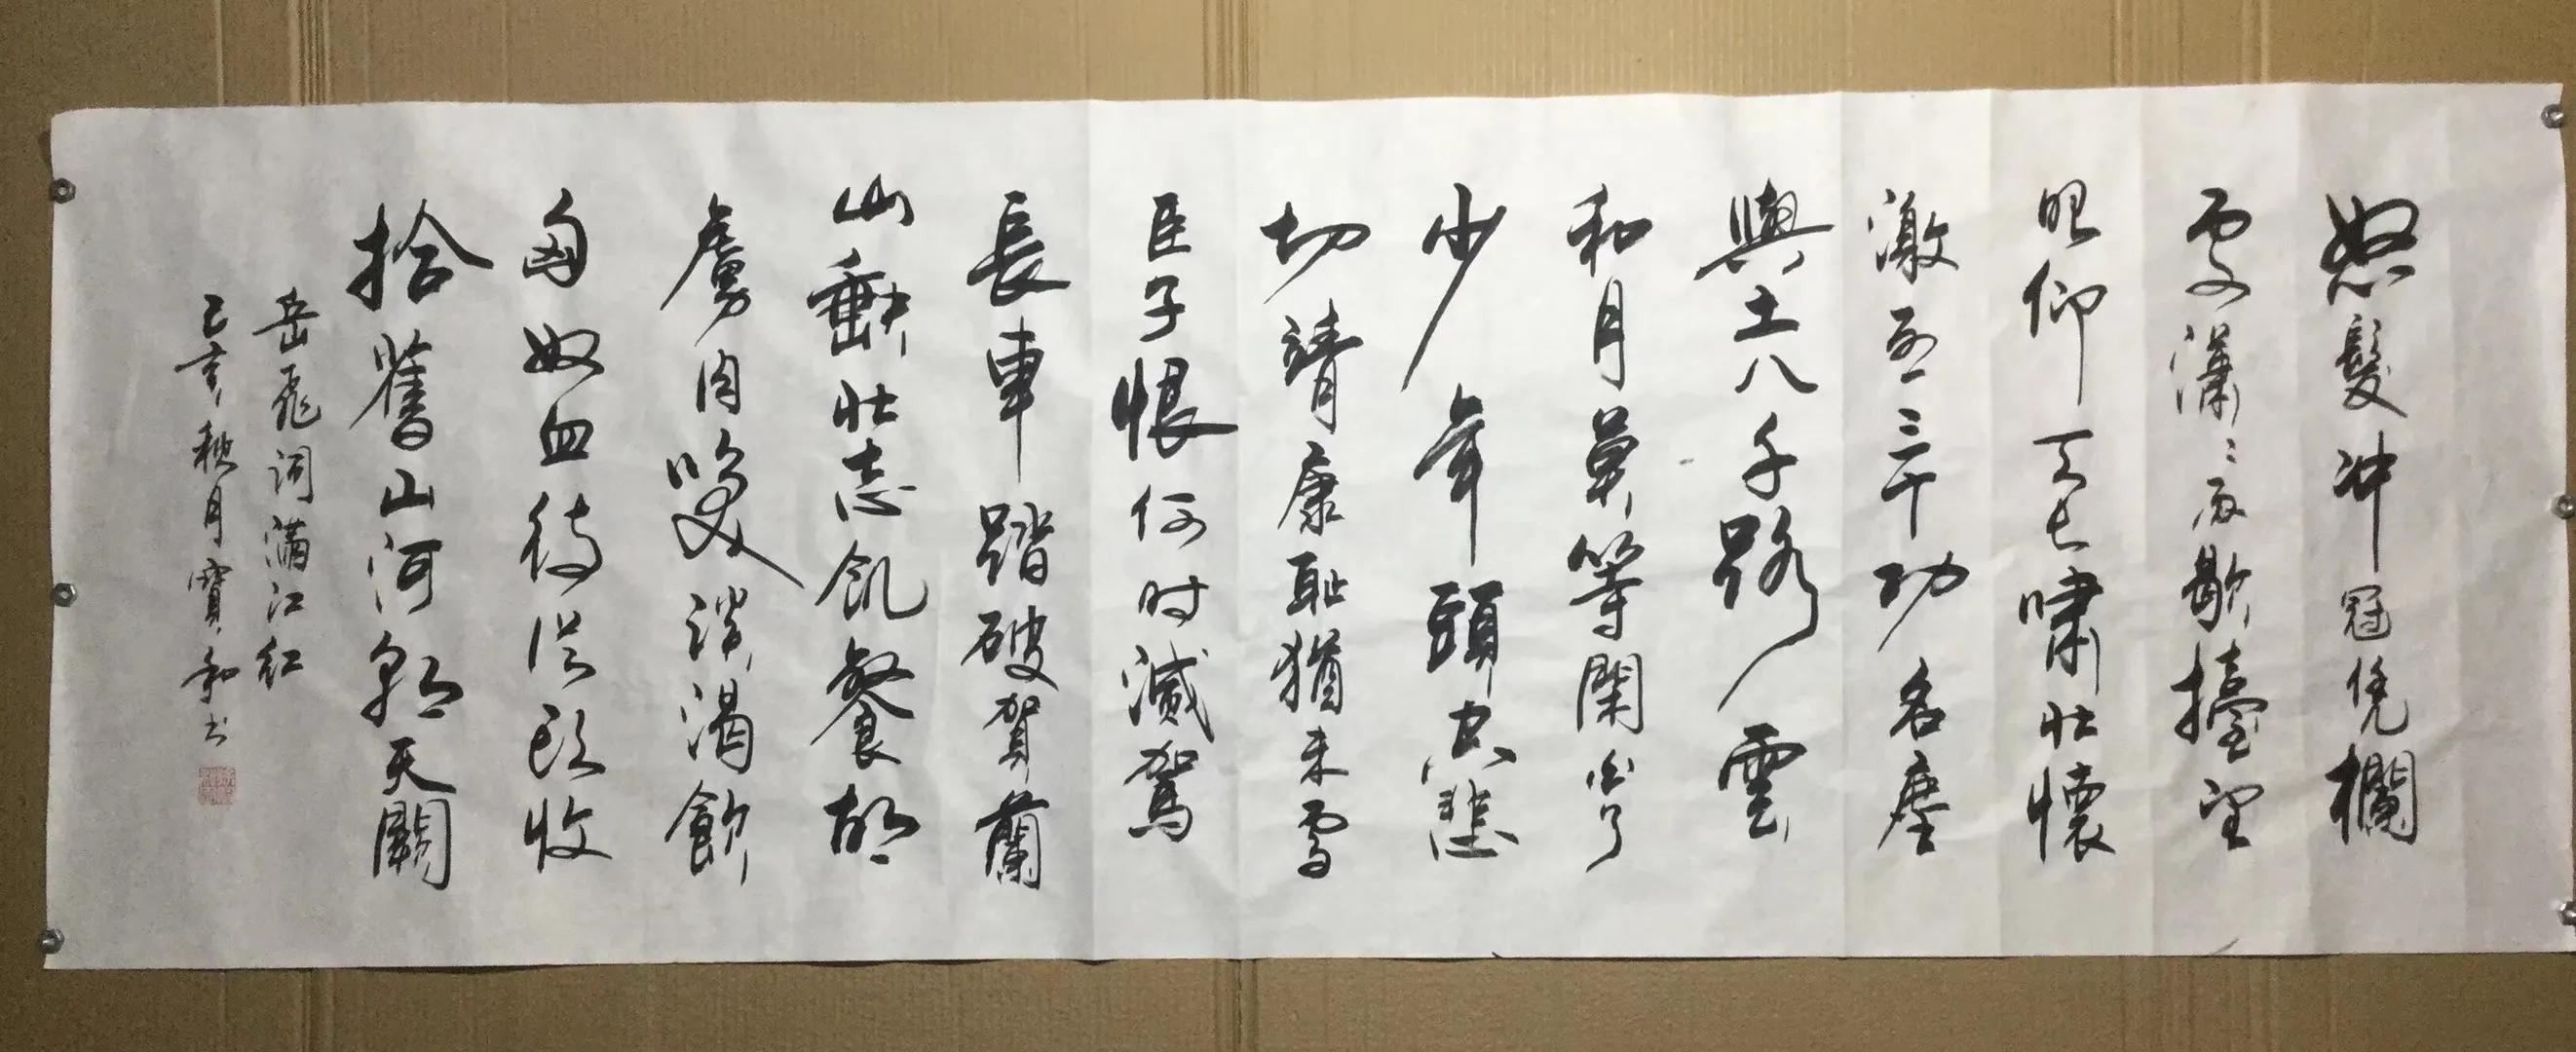 怒髮冲冠凭欄
處潇〻雨歇擡望
眼仰天長啸壯懷
激烈三千功名塵
與土八千路雲
和月莫等閑白了
少年頭空悲
切靖康恥猶未雪
臣子恨何时滅駕
長車踏破賀蘭
山缺壯志飢餐胡
虜肉笑談渴飲
匈奴血待從頭收
拾舊山河朝天闕
岳飛词满江红
己亥秋月寶和书